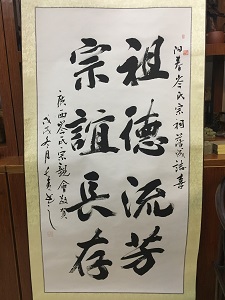 阳春岑氏宗祠落成誌喜
祖德流芳
宗誼長存
广西岑氏宗親會敬贺
戊戌冬月